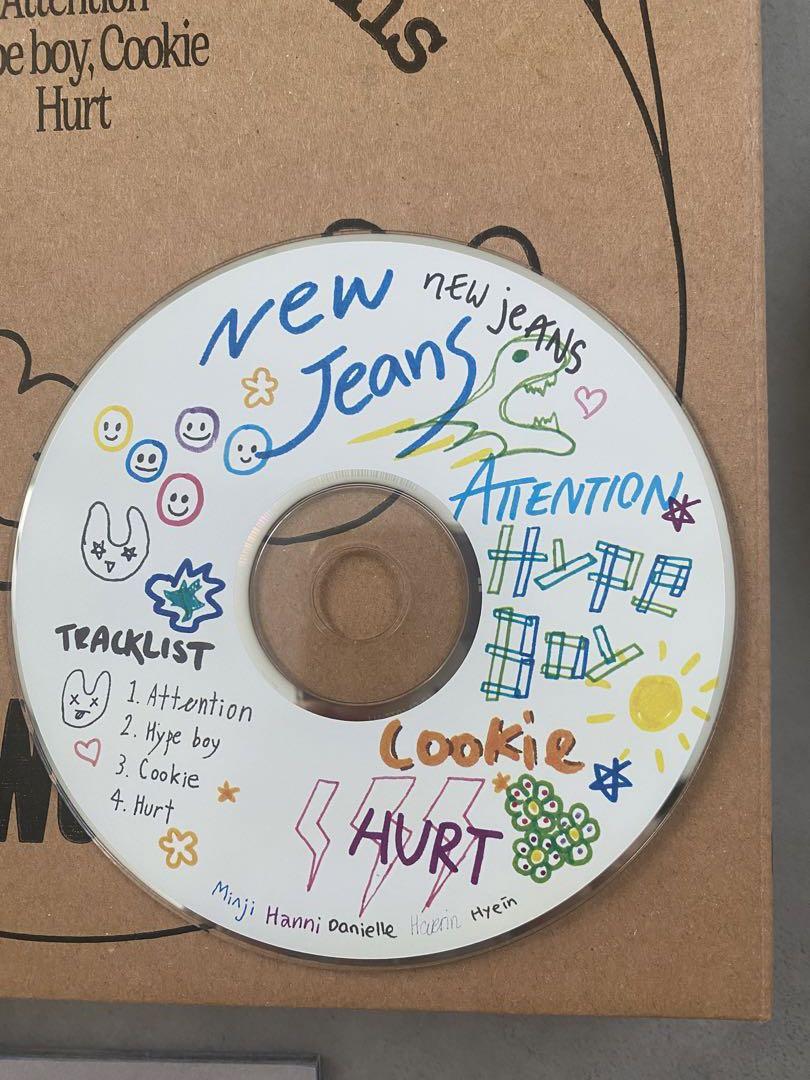 Attention
pe boy, Cookie
Hurt
ns
New
Jeans
NEW jeANS
ATTENTION
Hype
Boy
TRACKLIST
1. Attention
2. Hype boy
3. Cookie
4. Hurt
Cookie
HURT
Minji Hanni Danielle Haerin Hyein